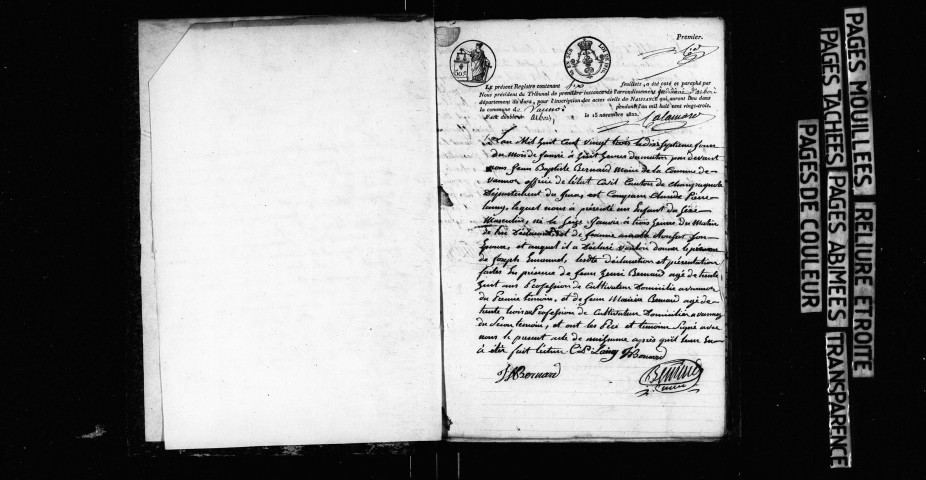 Premier.
Le présent Registre contenant six feuillets, a été coté et paraphé par
Nous président du Tribunal de première instance de l'arrondissement
département du Jura, pour l'inscription des actes civils de NAISSANCE qui auront lieu dans
la commune de Vannoz pendant l'an mil huit cent vingt-trois.
le 15 novembre 1822.
L'an Mil huit Cent vingt trois le dix Septieme jour
du Mois de Janvier à huit heures du matin par devant
nous Jean Baptiste Bernard Maire de la Commune de
vannoz officier de l'état Civil Canton de Champagnole
Département du Jura, est Comparu Claude Pierre
lamy, lequel nous a présenté un Enfant du Sexe
Masculin, né le Seize Janvier à trois heures du Matin
de lui Déclarant et de Jeanne Monfort Son
Epouse, et auquel il a Déclaré vouloir donner le prénom
de Joseph Emanuel, lesdite déclaration et présentation
faites En présence de Jean Henri Bernard agé de trente
huit ans Profession de Cultivateur Domicilié a vannoz
du Premier temoin, et de Jean Bernard agé de
trente trois ans Profession de Cultivateur Domicilié a vannoz
du Second temoin, et ont les Père et temoins Signé avec
nous le present acte de naissance après qu'il leur En
à été fait lecture C. P. Lamy JBernard
JHBernard
Bernard
maire
PAGES MOUILLEES RELIURE ETROITE
PAGES TACHEES PAGES ABIMEES TRANSPARENCE
PAGES DE COULEUR